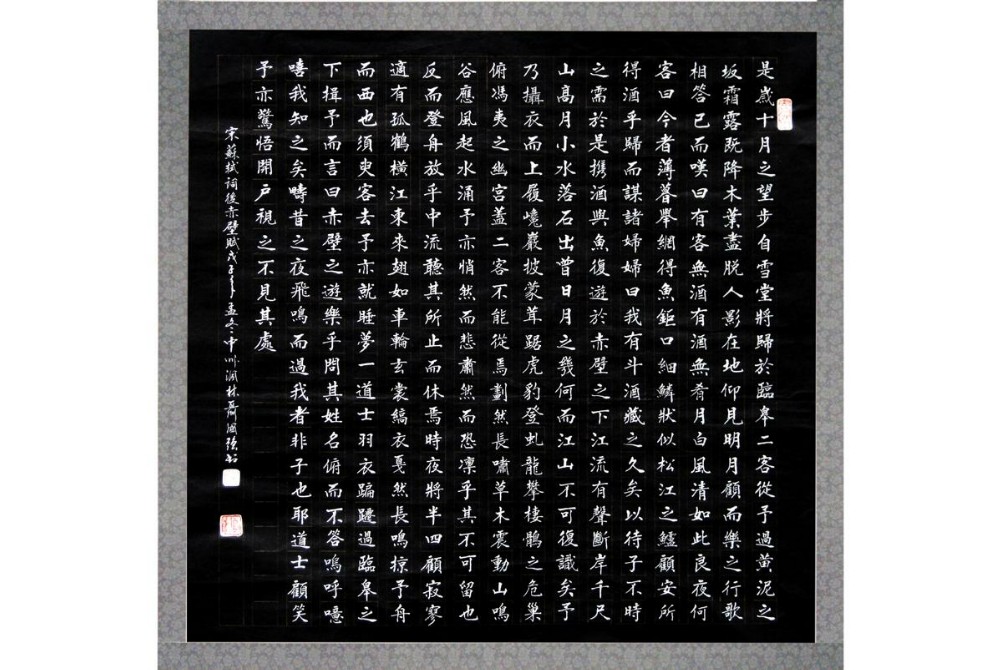 是歲十月之望步自雪堂將歸於臨皋二客從予過黃泥之
坂霜露既降木葉盡脫人影在地仰見明月顧而樂之行歌
相答已而嘆曰有客無酒有酒無肴月白風清如此良夜何
客曰今者薄暮舉網得魚鉅口細鱗狀似松江之鱸顧安所
得酒乎歸而謀諸婦婦曰我有斗酒藏之久矣以待子不時
之需於是携酒與魚復遊於赤壁之下江流有聲斷岸千尺
山高月小水落石出曾日月之幾何而江山不可復識矣予
乃攝衣而上履巉巖披蒙茸踞虎豹登虬龍攀棲鶻之危巢
俯馮夷之幽宮蓋二客不能從焉劃然長嘯草木震動山鳴
谷應風起水涌予亦悄然而悲肅然而恐凜乎其不可留也
反而登舟放乎中流聽其所止而休焉時夜將半四顧寂寥
適有孤鶴橫江東來翅如車輪玄裳縞衣戛然長鳴掠予舟
而西也須臾客去予亦就睡夢一道士羽衣蹁躚過臨皋之
下揖予而言曰赤壁之遊樂乎問其姓名俯而不答嗚呼噫
嘻我知之矣疇昔之夜飛鳴而過我者非子也耶道士顧笑
予亦驚悟開戶視之不見其處
宋蘇軾詞後赤壁賦戊子年孟冬中州